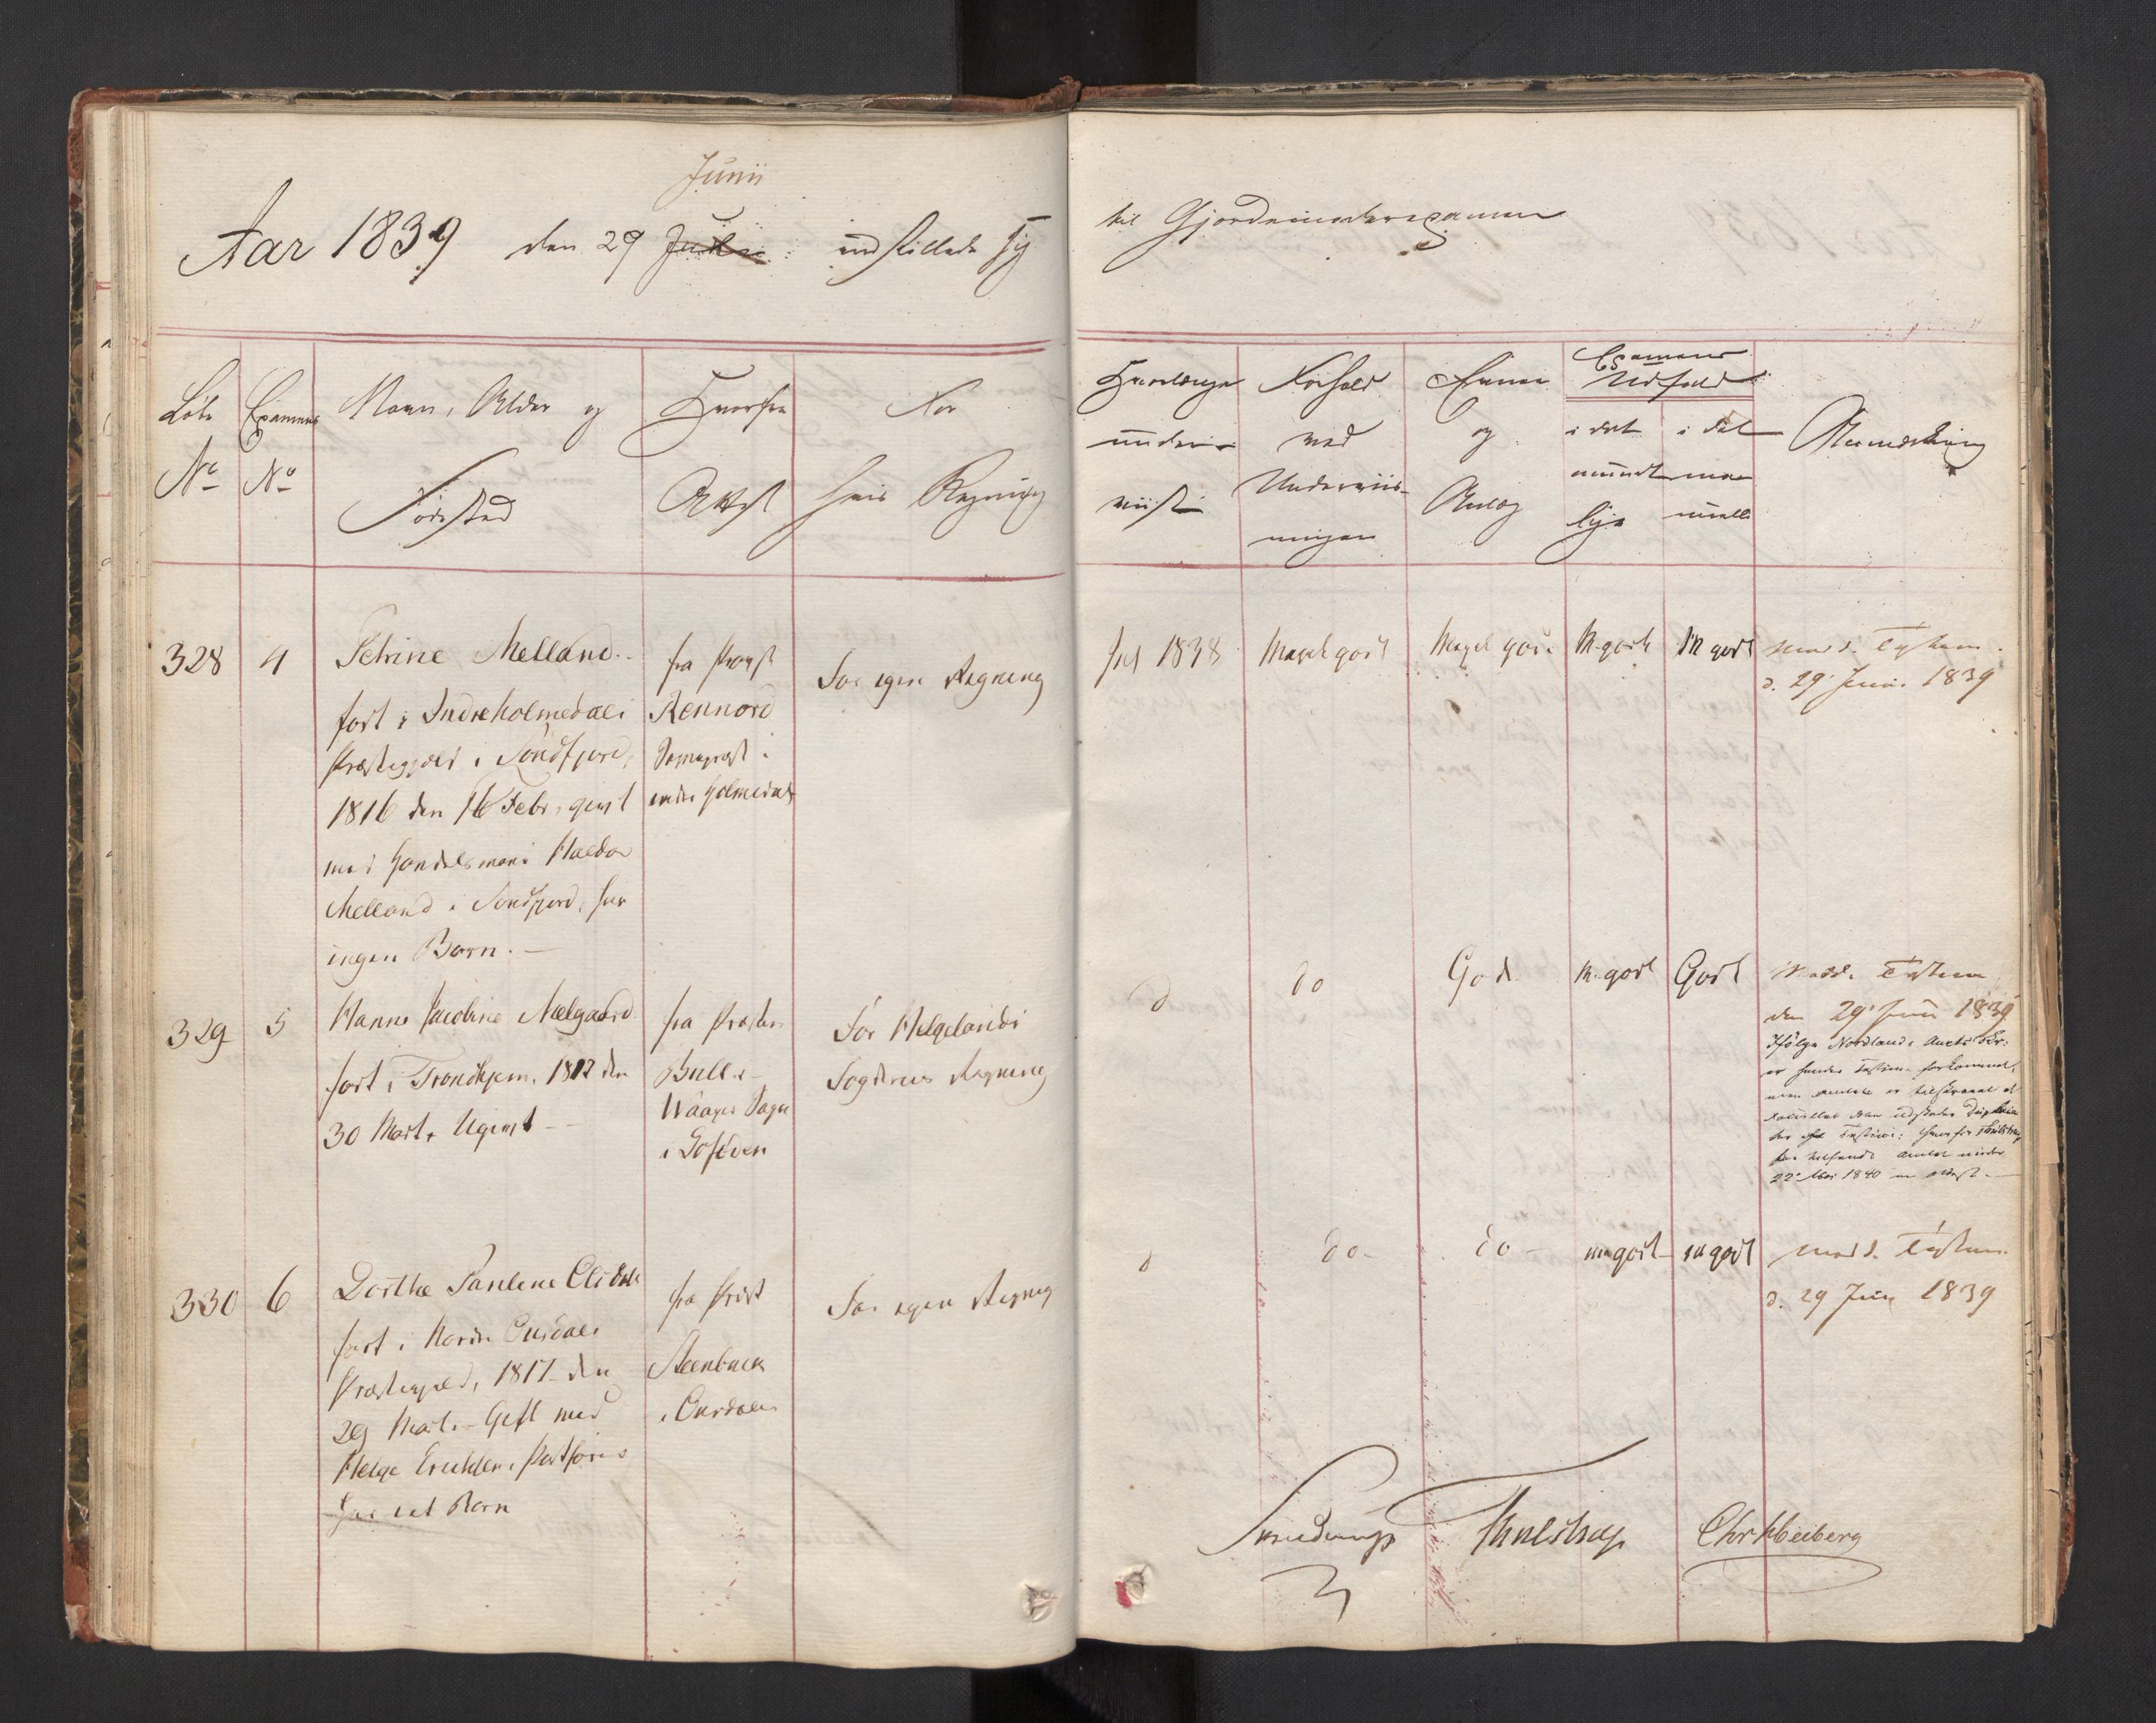 Junii
Aar 1839 den 29 Julii indstillede sig
til Gjordemoderexamen
Løbe
No
Examens
No
Navn, Alder og
Fødested
Hvorfra
Attest
For
hvis Regning
Hvorlænge
under-
viist
Forhold
ved
Underviis-
ningen
Evner
og
Anlæg
Examens
Udfald
i det
mundt
lige
i det
ma
nuelle
Anmærkning
328
4
Petrine Melland.
født i Indreholmedals
Præstegjæld i Søndfjord,
1816 den 16 Febr. givt
med Handelsmand Haldor
Melland i Søndfjord, har
ingen Børn.
fra Provst
Rennord
Sognepræst i
indre Holmedal
For egen Regning
Jul 1838
Meget godt
Meget god
M. godt
M godt
medd. Testim.
d. 29 Juni 1839
329
5
Hanne Jacobine Nælgaard
født i Trondhjem, 1812 den
30 Marts Ugivt
fra Præsten
Bull i
Waagø Sogn
i Lofoden
For Helgelands
Fogderies Regning
d
do
God
M. godt
Godt
Medd. Testim
den 29 Juni 1839
Ifølge Nordlands Amts Br:
er hendes Testim. forkommet,
22 Mai 1840 en Attest.
330
6
Dorthe Paulene
født i Nordre Ourdals
Præstegjæld, 1817 den
29 Marts Gift med
Helge Erichsen
har et Barn
fra Præst
Steenbuck
i Ourdal
For egen Regning
d
do
do
m godt
m godt
medd. Testim.
d. 29 Juni 1839
Thulstrup
Chr Heiberg